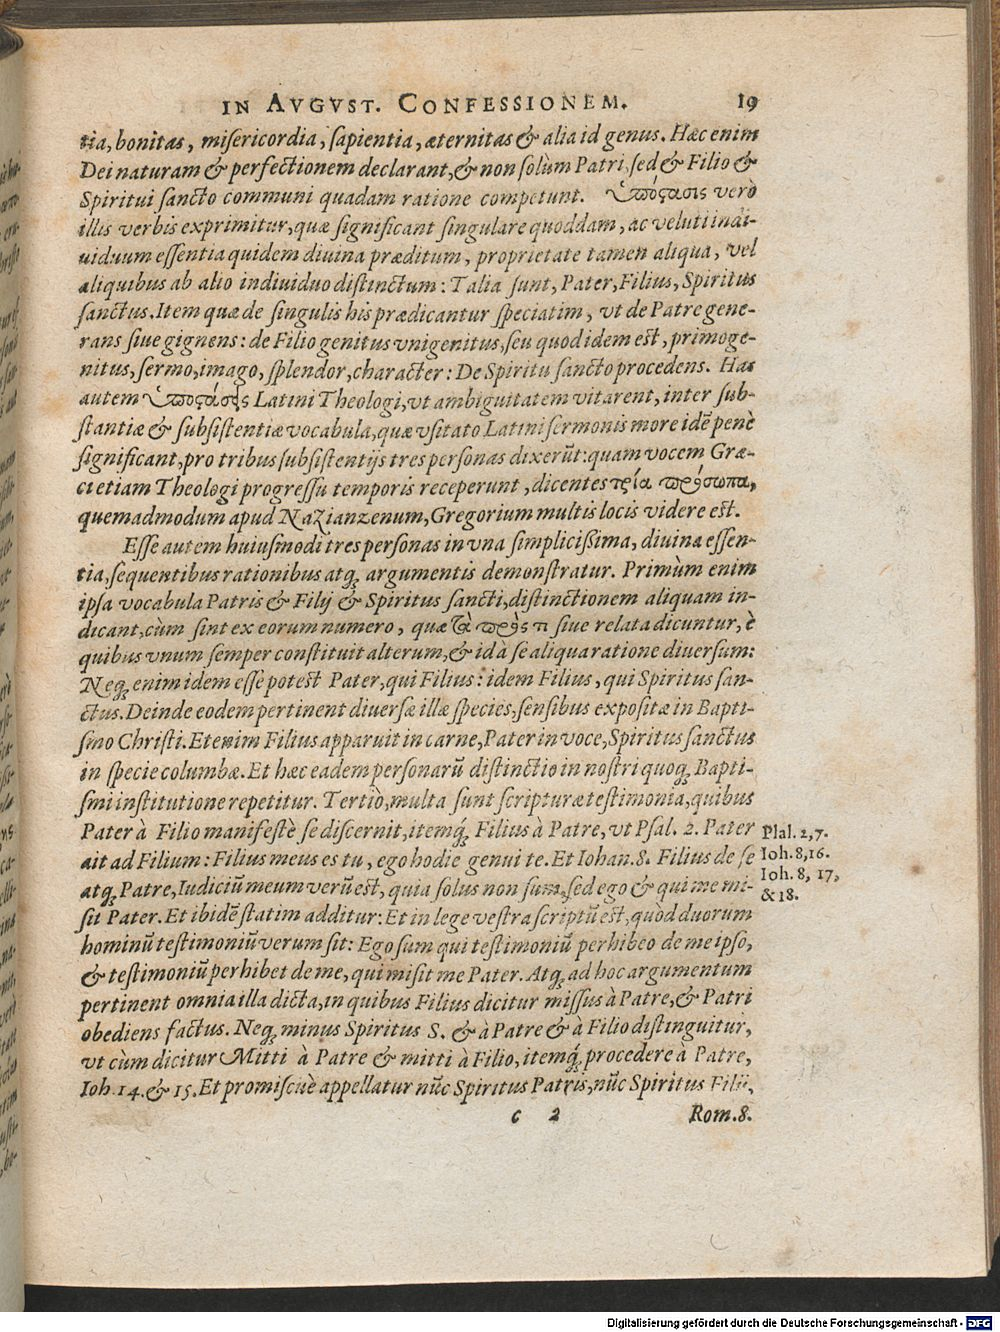 IN AVGVST. CONFESSIONEM. 19
tia, bonitas, miſericordia, ſapientia, æternitas & alia id genus. Hæc enim
Dei naturam & perfectionem declarant, & non ſolùm Patri, ſed & Filio &
Spiritui ſancto communi quadam ratione competunt. Ὑπόςασις verò
illis verbis exprimitur, quæ ſignificant ſingulare quoddam, ac veluti indi-
uiduum eſſentia quidem diuina præditum, proprietate tamen aliqua, vel
aliquibus ab alio indiuiduo diſtinctum: Talia ſunt, Pater, Filius, Spiritus
ſanctus. Item quæ de ſingulis his prædicantur ſpeciatim, vt de Patre gene-
rans ſiue gignens: de Filio genitus vnigenitus, ſeu quod idem eſt, primoge-
nitus, ſermo, imago, ſplendor, character: De Spiritu ſancto procedens. Has
autem ὑποςάσεις Latini Theologi, vt ambiguitatem vitarent, inter ſub-
ſtantiæ & ſubſiſtentiæ vocabula, quæ vſitato Latini ſermonis more idē penè
ſignificant, pro tribus ſubſiſtentijs tres perſonas dixerūt: quam vocem Græ-
ci etiam Theologi progreſſu temporis receperunt, dicentes τρία πρόσωπα,
quemadmodum apud Nazianzenum, Gregorium multis locis videre eſt.
Eſſe autem huiuſmodi tres perſonas in vna ſimpliciſsima, diuina eſſen-
tia, ſequentibus rationibus atq; argumentis demonſtratur. Primùm enim
ipſa vocabula Patris & Filij & Spiritus ſancti, diſtinctionem aliquam in-
dicant, cùm ſint ex eorum numero, quæ τὰ πρός τι ſiue relata dicuntur, è
quibus vnum ſemper conſtituit alterum, & id à ſe aliqua ratione diuerſum:
Neq; enim idem eſſe poteſt Pater, qui Filius: idem Filius, qui Spiritus ſan-
ctus. Deinde eodem pertinent diuerſæ illæ ſpecies, ſenſibus expoſitæ in Bapti-
ſmo Chriſti. Etenim Filius apparuit in carne, Pater in voce, Spiritus ſanctus
in ſpecie columbæ. Et hæc eadem perſonarū diſtinctio in noſtri quoq; Bapti-
ſmi inſtitutione repetitur. Tertiò, multa ſunt ſcripturæ teſtimonia, quibus
Pater à Filio manifeſtè ſe diſcernit, itemq́; Filius à Patre, vt Pſal. 2. Pater
ait ad Filium: Filius meus es tu, ego hodie genui te. Et Iohan. 8. Filius de ſe
atq; Patre, Iudiciū meum verū eſt, quia ſolus non ſum, ſed ego & qui me mi-
ſit Pater. Et ibidē ſtatim additur: Et in lege veſtra ſcriptū eſt, quòd duorum
hominū teſtimoniū verum ſit: Ego ſum qui teſtimoniū perhibeo de meipſo,
& teſtimoniū perhibet de me, qui miſit me Pater. Atq; ad hoc argumentum
pertinent omnia illa dicta, in quibus Filius dicitur miſſus à Patre, & Patri
obediens factus. Neq; minus Spiritus S. & à Patre & à Filio diſtinguitur,
vt cùm dicitur Mitti à Patre & mitti à Filio, itemq́; procedere à Patre,
Ioh. 14. & 15. Et promiſcuè appellatur nūc Spiritus Patris, nūc Spiritus Filij,
c 2 Rom. 8.
Pſal. 2, 7.
Ioh. 8, 16.
Ioh. 8, 17,
& 18.
Digitalisierung gefördert durch die Deutsche Forschungsgemeinschaft - DFG